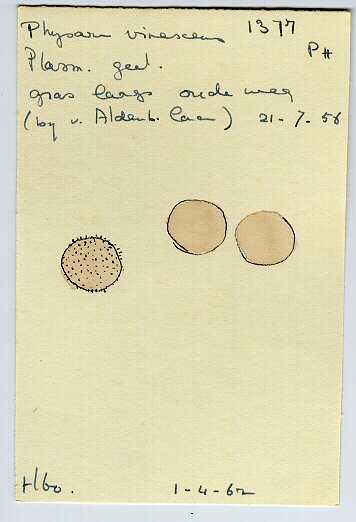 Physarum virescens 1377
PH
Plasm. geel.
gras langs oude weg
(by v. Aldenb. laan) 21-7-56
Hbo. 1-4-62